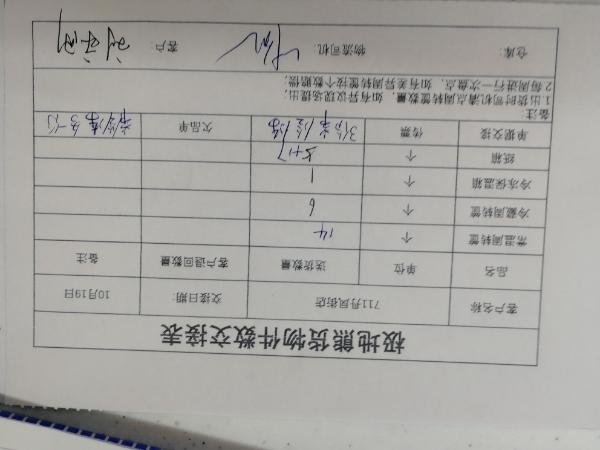 极地熊货物件数交接表
客户名称 711丹凤街店 交接日期: 10月19日
品名 单位 送货数量 客户退回数量 备注
常温周转筐 个 14
冷藏周转筐 个 6
冷冻保温箱 个 1
纸箱 个
单据交接 传票 欠品单
备注:
1出货时司机清点周转筐数量,如有异议现场提出;
2每周进行一次盘点,如有差异周转筐按个数赔偿;
仓库: 物流司机: 客户: